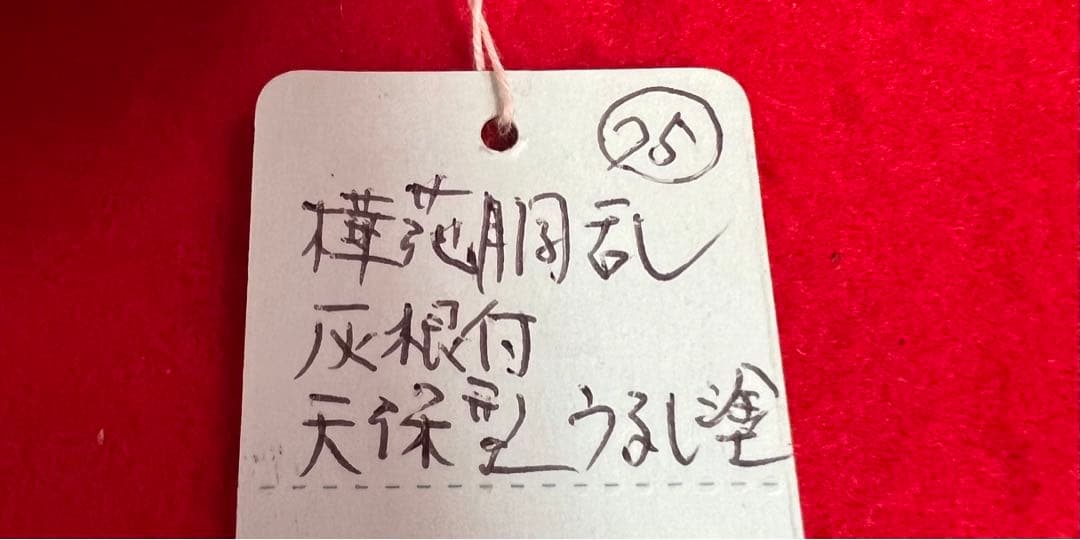 25
樺范胴乱
灰根付
天保型うるし塗